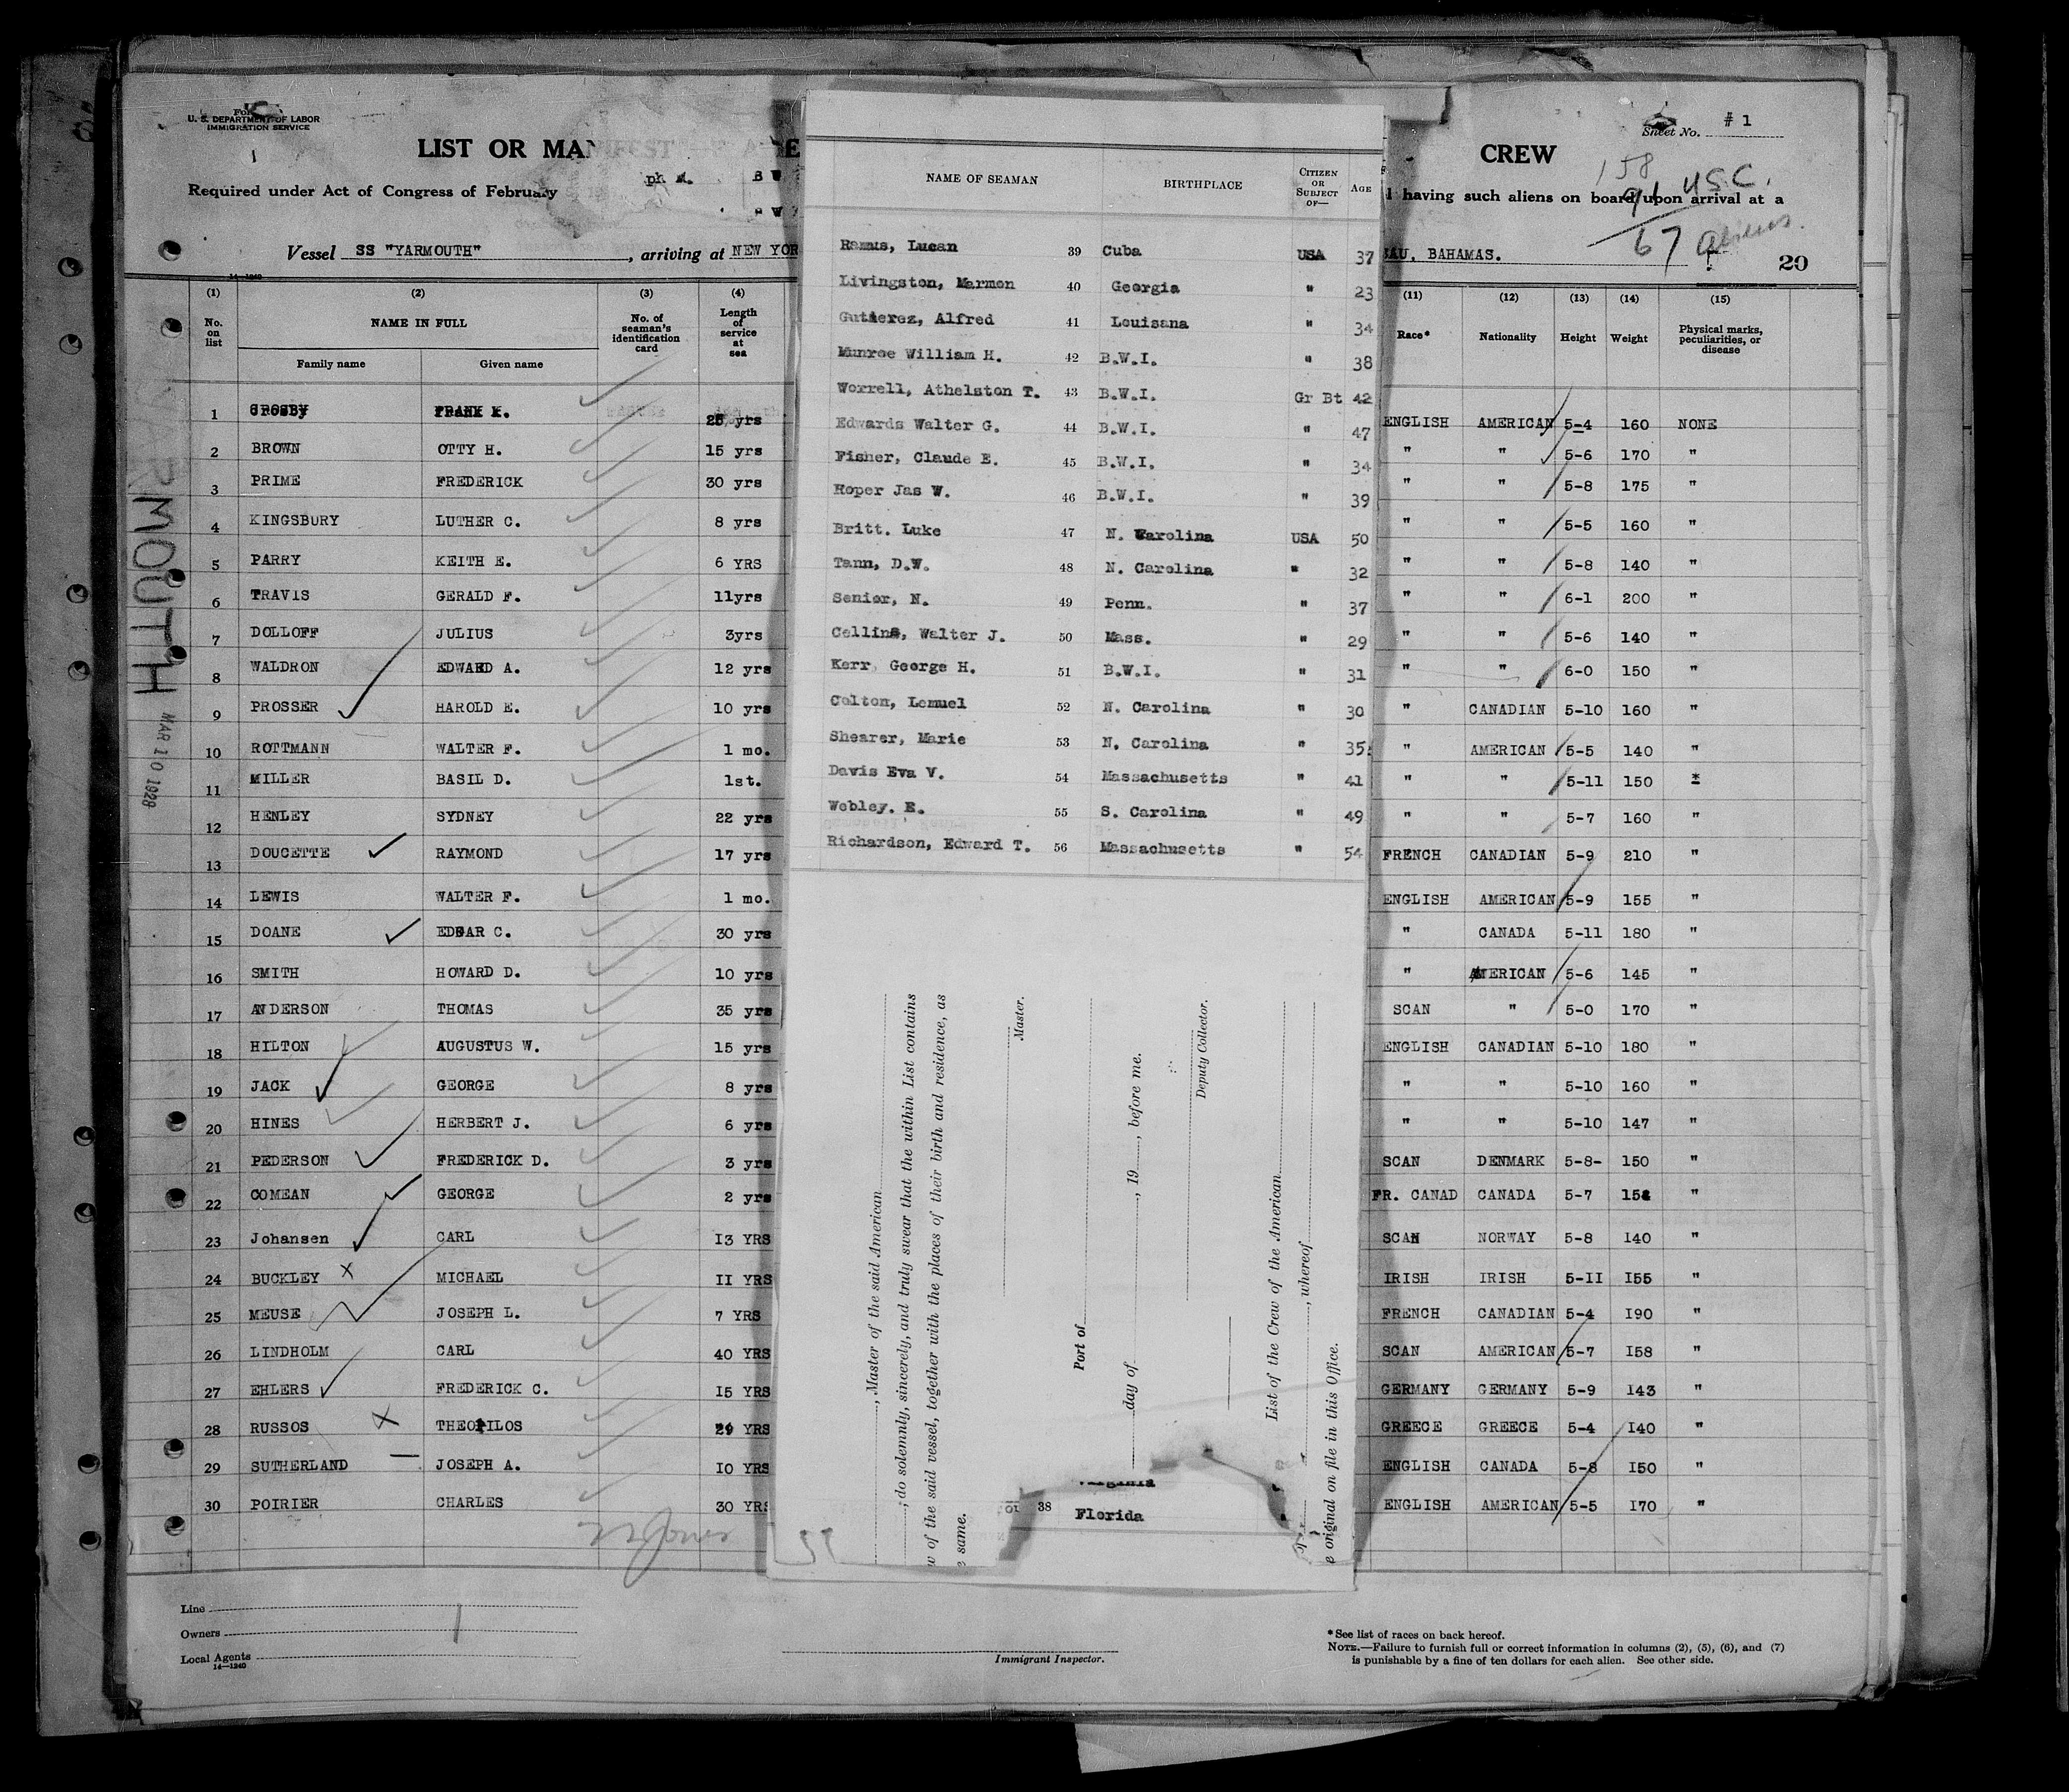 U. S. DEPARTMENT OF LABOR
IMMIGRATION SERVICE
Sheet No. # 1
LIST OR MANIFEST CREW
Required under Act of Congress of February having such aliens on board upon arrival at a
158
91 U.S.C.
67 aliens
Vessel SS "YARMOUTH", arriving at NEW YOR BAHAMAS. 20
14-1240
(1) (2) (3) (4) (11) (12) (13) (14) (15)
No. on list NAME IN FULL No. of seaman's identification card Length of service at sea Race* Nationality Height Weight Physical marks, peculiarities, or disease
Family name Given name
1 CROSBY FRANK K. 25 yrs ENGLISH AMERICAN 5-4 160 NONE
2 BROWN OTTY H. 15 yrs " " 5-6 170 "
3 PRIME FREDERICK 30 yrs " " 5-8 175 "
4 KINGSBURY LUTHER C. 8 yrs " " 5-5 160 "
5 PARRY KEITH E. 6 YRS " " 5-8 140 "
6 TRAVIS GERALD F. 11yrs " " 6-1 200 "
7 DOLLOFF JULIUS 3yrs " " 5-6 140 "
8 WALDRON EDWARD A. 12 yrs " " 6-0 150 "
9 PROSSER HAROLD E. 10 yrs " CANADIAN 5-10 160 "
10 ROTTMANN WALTER F. 1 mo. " AMERICAN 5-5 140 "
11 MILLER BASIL D. 1st. " " 5-11 150 *
12 HENLEY SYDNEY 22 yrs " " 5-7 160 "
13 DOUCETTE RAYMOND 17 yrs FRENCH CANADIAN 5-9 210 "
14 LEWIS WALTER F. 1 mo. ENGLISH AMERICAN 5-9 155 "
15 DOANE EDGAR C. 30 yrs " CANADA 5-11 180 "
16 SMITH HOWARD D. 10 yrs " AMERICAN 5-6 145 "
17 ANDERSON THOMAS 35 yrs SCAN " 5-0 170 "
18 HILTON AUGUSTUS W. 15 yrs ENGLISH CANADIAN 5-10 180 "
19 JACK GEORGE 8 yrs " " 5-10 160 "
20 HINES HERBERT J. 6 yrs " " 5-10 147 "
21 PEDERSON FREDERICK D. 3 yrs SCAN DENMARK 5-8- 150 "
22 COMEAN GEORGE 2 yrs FR. CANAD CANADA 5-7 "
23 Johansen CARL I3 YRS SCAN NORWAY 5-8 I40 "
24 BUCKLEY MICHAEL II YRS IRISH IRISH 5-II I55 "
25 MEUSE JOSEPH L. 7 YRS FRENCH CANADIAN 5-4 I90 "
26 LINDHOLM CARL 40 YRS SCAN AMERICAN 5-7 I58 "
27 EHLERS FREDERICK C. I5 YRS GERMANY GERMANY 5-9 I43 "
28 RUSSOS THEOFILOS 29 YRS GREECE GREECE 5-4 I40 "
29 SUTHERLAND JOSEPH A. I0 YRS ENGLISH CANADA 5-8 I50 "
30 POIRIER CHARLES 30 YRS ENGLISH AMERICAN 5-5 I70 "
Line
Owners
Local Agents
14-1240
Immigrant Inspector.
*See list of races on back hereof.
NOTE.—Failure to furnish full or correct information in columns (2), (5), (6), and (7)
is punishable by a fine of ten dollars for each alien. See other side.
NAME OF SEAMAN BIRTHPLACE CITIZEN OR SUBJECT OF— AGE
Ramus, Lucan 39 Cuba USA 37
Livingston, Marmon 40 Georgia " 23
Gutierez, Alfred 41 Louisana " 34
Munroe William H. 42 B.W.I. " 38
Worrell, Athelston T. 43 B.W.I. Gr Bt 42
Edwards Walter G. 44 B.W.I. " 47
Fisher, Claude E. 45 B.W.I. " 34
Roper Jas W. 46 B.W.I. " 39
Britt. Luke 47 N. Carolina USA 50
Tann, D.W. 48 N. Carolina " 32
Senior, N. 49 Penn. " 37
Collins, Walter J. 50 Mass. " 29
Kerr, George H. 51 B.W.I. " 31
Colton, Lemuel 52 N. Carolina " 30
Shearer, Marie 53 N. Carolina " 35
Davis Eva V. 54 Massachusetts " 41
Webley. E. 55 S. Carolina " 49
Richardson, Edward T. 56 Massachusetts " 54
, Master of the said American
, do solemnly, sincerely, and truly swear that the within List contains
w of the said vessel, together with the places of their birth and residence, as
e same.
Master.
Port of
day of , 19 , before me.
Deputy Collector.
List of the Crew of the American
, whereof
e original on file in this Office.
Virginia
38 Florida
YARMOUTH
MAR 10 1928